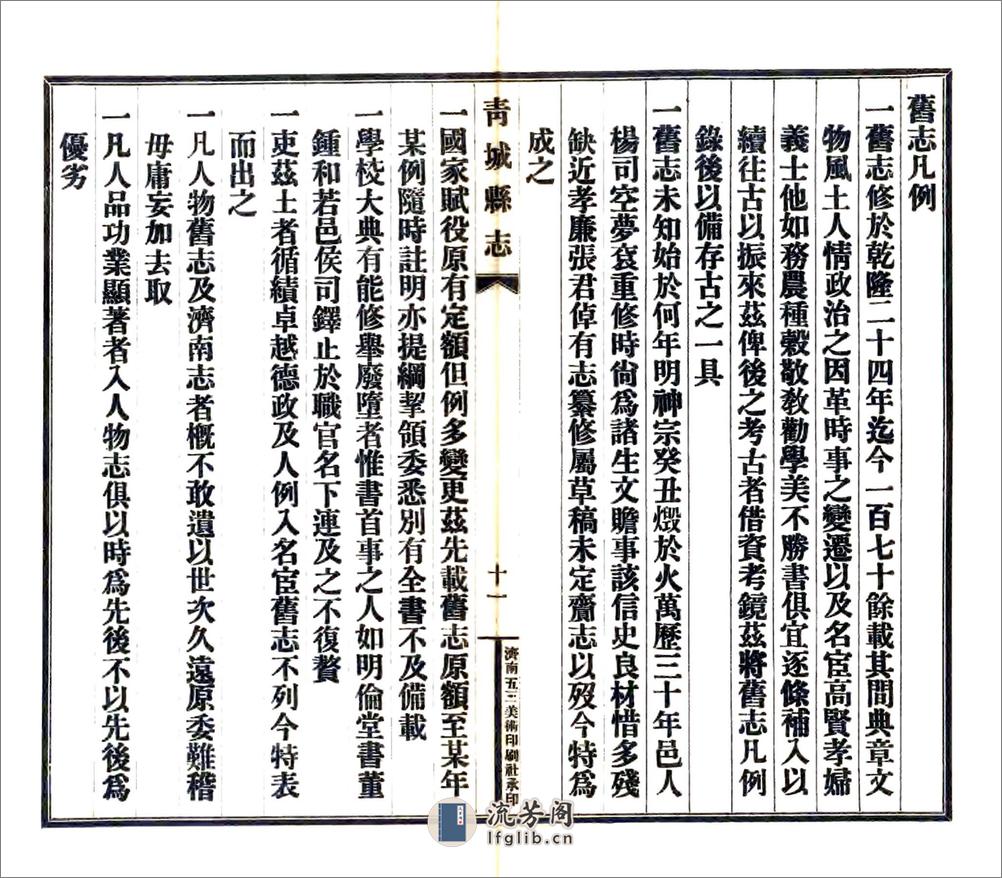 舊志凡例
一舊志修於乾隆二十四年迄今一百七十餘載其間典章文
物風土人情政治之因革時事之變遷以及名宦高賢孝婦
義士他如務農種穀敬教勸學美不勝書俱宜逐條補入以
續往古以振來茲俾後之考古者借資考鏡茲將舊志凡例
錄後以備存古之一具
一舊志未知始於何年明神宗癸丑燬於火萬歷三十年邑人
楊司空夢袞重修時尙爲諸生文贍事該信史良材惜多殘
缺近孝廉張君倬有志纂修屬草稿未定齎志以歿今特爲
成之
青城縣志
十一
濟南五三美術印刷社承印
一國家賦役原有定額但例多變更茲先載舊志原額至某年
某例隨時註明亦提綱挈領委悉別有全書不及備載
一學校大典有能修舉廢墮者惟書首事之人如明倫堂書董
鍾和若邑侯司鐸止於職官名下連及之不復贅
一吏茲土者循績卓越德政及人例入名宦舊志不列今特表
而出之
一凡人物舊志及濟南志者槪不敢遺以世次久遠原委難稽
毋庸妄加去取
一凡人品功業顯著者入人物志俱以時爲先後不以先後爲
優劣
流芳阁
lfglib.cn